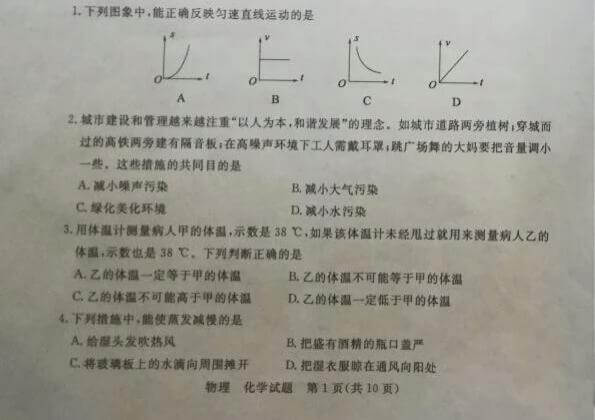 1.下列图象中,能正确反映匀速直线运动的是
s v s v
O t O t O t O t
A B C D
2.城市建设和管理越来越注重“以人为本,和谐发展”的理念。如城市道路两旁植树;穿城而
过的高铁两旁建有隔音板;在高噪声环境下工人需戴耳罩;跳广场舞的大妈要把音量调小
一些。这些措施的共同目的是
A.减小噪声污染 B.减小大气污染
C.绿化美化环境 D.减小水污染
3.用体温计测量病人甲的体温,示数是 38 ℃,如果该体温计未经甩过就用来测量病人乙的
体温,示数也是 38 ℃。下列判断正确的是
A.乙的体温一定等于甲的体温 B.乙的体温不可能等于甲的体温
C.乙的体温不可能高于甲的体温 D.乙的体温一定低于甲的体温
4.下列措施中,能使蒸发减慢的是
A.给湿头发吹热风 B.把盛有酒精的瓶口盖严
C.将玻璃板上的水滴向周围摊开 D.把湿衣服晾在通风向阳处
物理 化学试题 第1页(共10页)